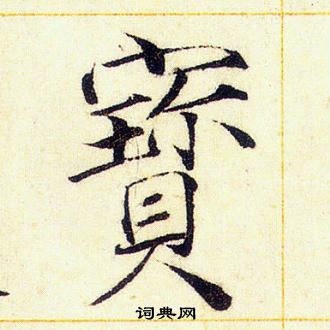 寳
词典网